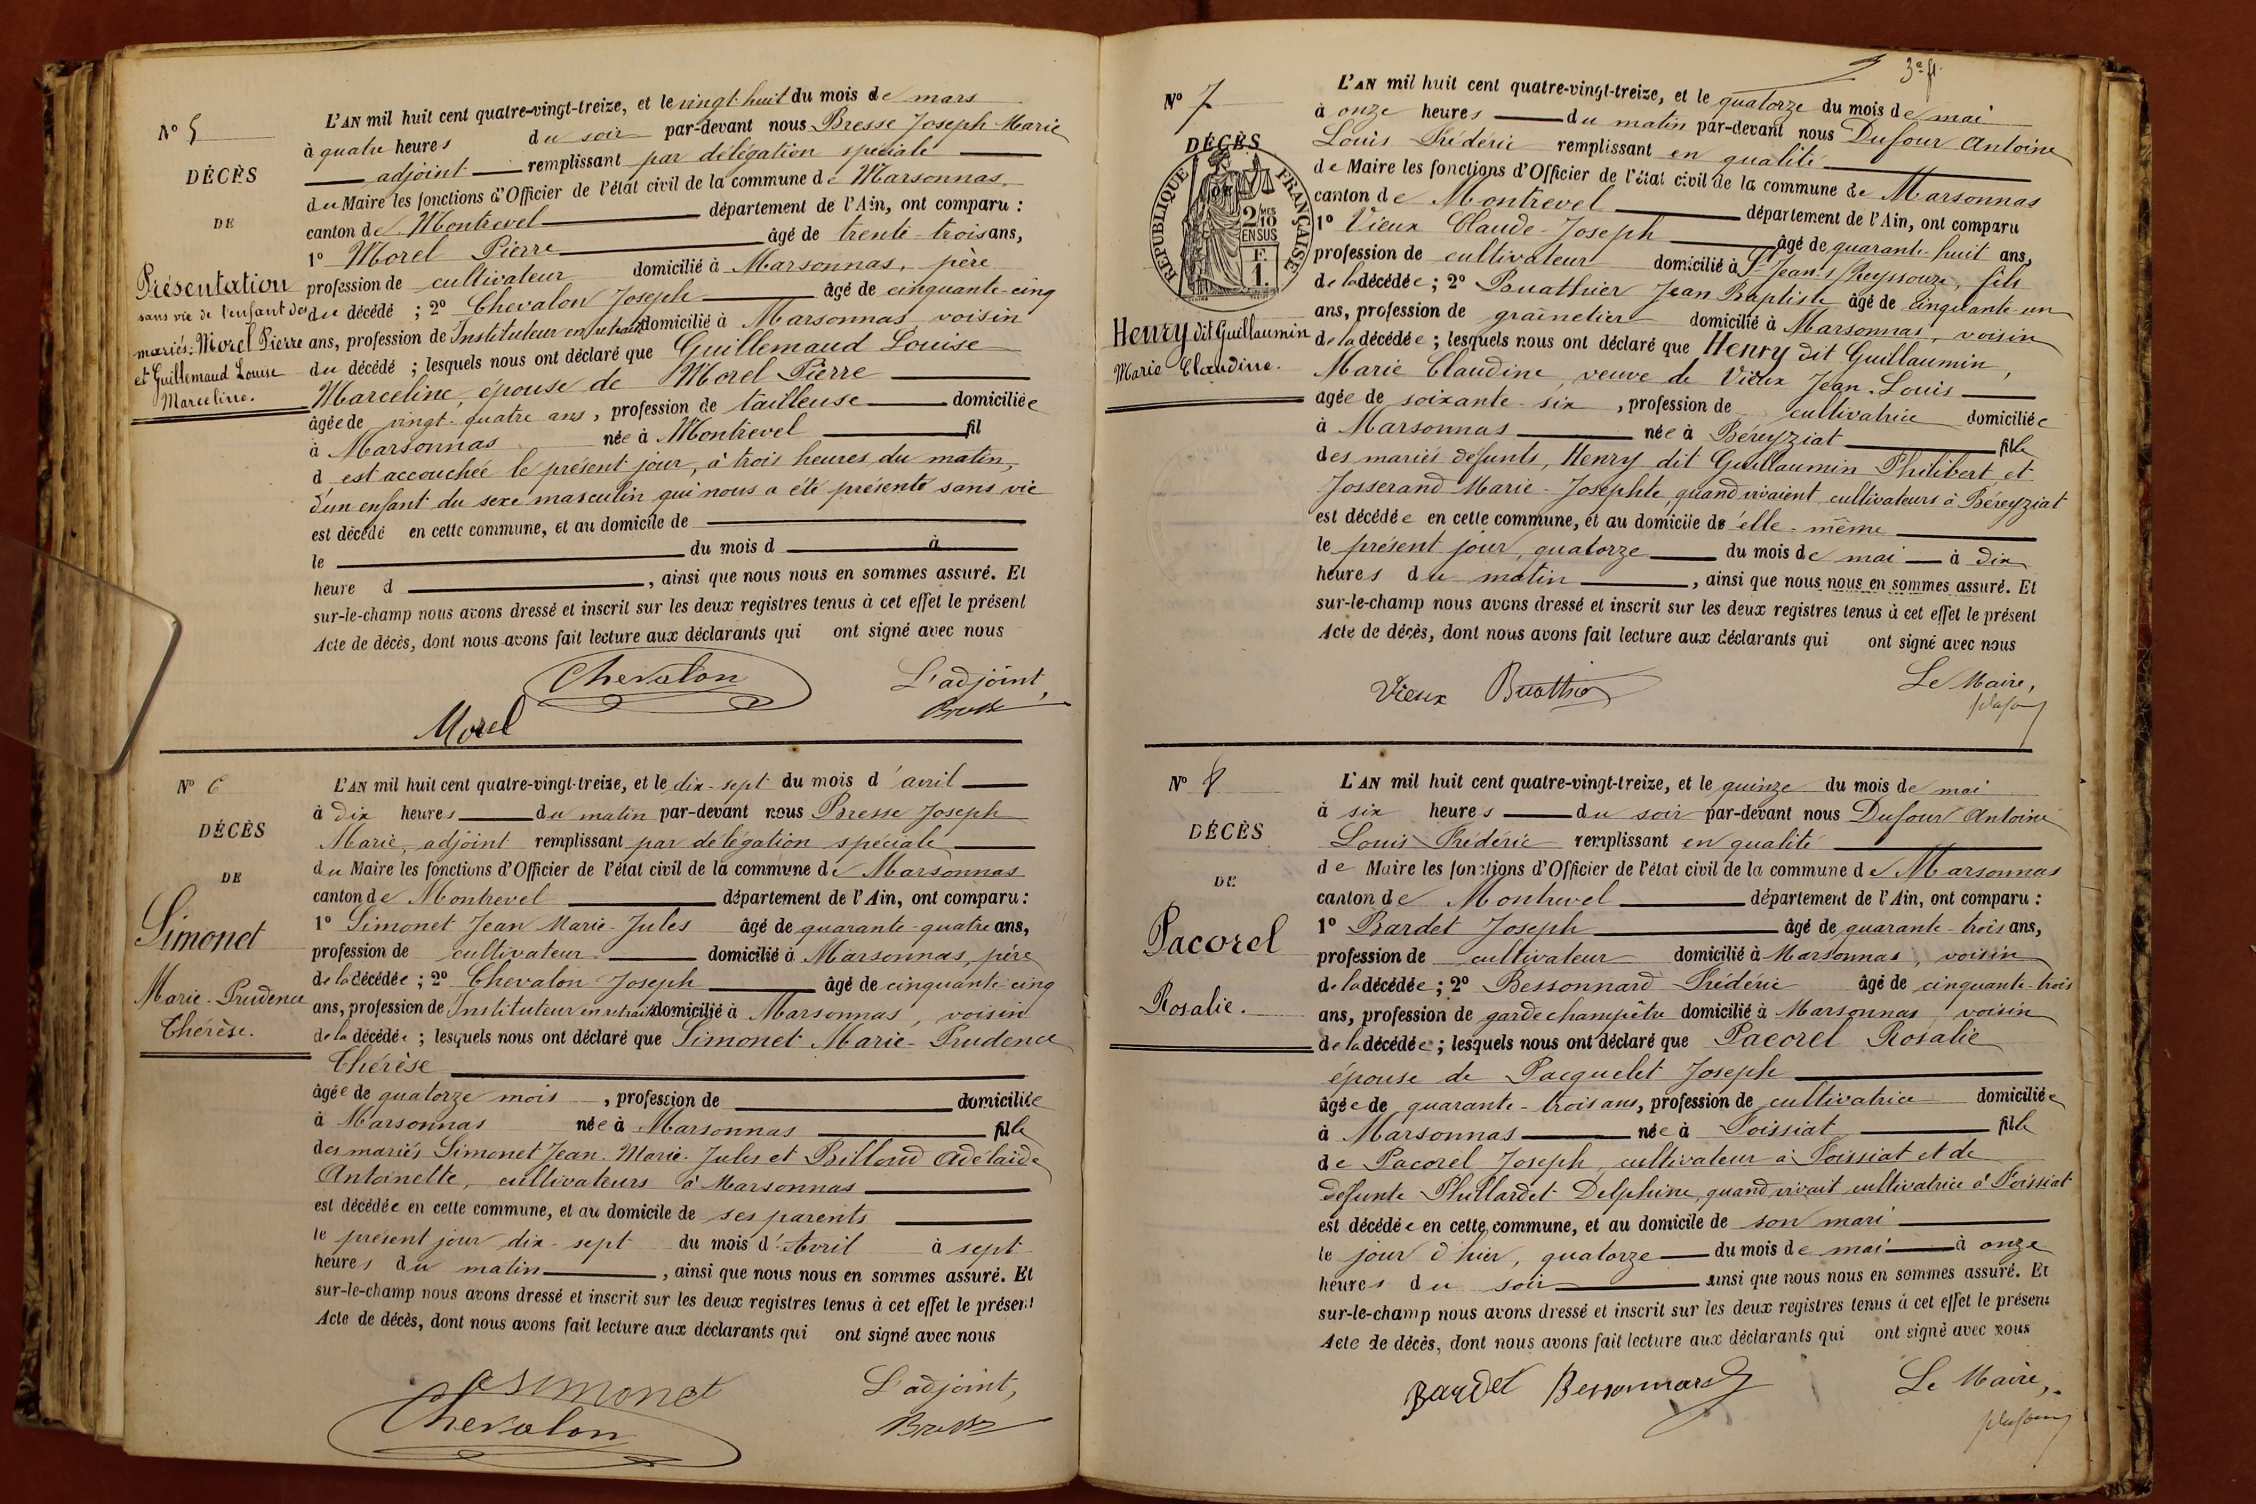 Nº 5
DÉCÈS
DE
Présentation
sans vie de l'enfant des
mariés: Morel Pierre
et Guillemaud Louise
Marceline.
L'AN mil huit cent quatre-vingt-treize, et le vingt-huit du mois de mars
à quatre heures du soir par-devant nous Bresse Joseph-Marie
adjoint remplissant par délégation spéciale
du Maire les fonctions d'Officier de l'état civil de la commune de Marsonnas
canton de Montrevel département de l'Ain, ont comparu :
1º Morel Pierre âgé de trente-trois ans,
profession de cultivateur domicilié à Marsonnas, père
du décédé ; 2º Chevalon Joseph âgé de cinquante-cinq
ans, profession de Instituteur en retraite domicilié à Marsonnas voisin
du décédé ; lesquels nous ont déclaré que Guillemaud Louise
Marceline, épouse de Morel Pierre
âgée de vingt-quatre ans, profession de tailleuse domiciliée
à Marsonnas née à Montrevel fil
d est accouchée le présent jour, à trois heures du matin,
d'un enfant du sexe masculin qui nous a été présenté sans vie
est décédé en cette commune, et au domicile de
le du mois d à
heure d , ainsi que nous nous en sommes assuré. Et
sur-le-champ nous avons dressé et inscrit sur les deux registres tenus à cet effet le présent
Acte de décès, dont nous avons fait lecture aux déclarants qui ont signé avec nous
Chevalon L'adjoint,
Morel Bresse
Nº 6
DÉCÈS
DE
Simonet
Marie-Prudence
Thérèse.
L'AN mil huit cent quatre-vingt-treize, et le dix-sept du mois d'avril
à dix heures du matin par-devant nous Bresse Joseph
Marie, adjoint remplissant par délégation spéciale
du Maire les fonctions d'Officier de l'état civil de la commune de Marsonnas
canton de Montrevel département de l'Ain, ont comparu :
1º Simonet Jean Marie-Jules âgé de quarante-quatre ans,
profession de cultivateur domicilié à Marsonnas, père
de la décédée ; 2º Chevalon Joseph âgé de cinquante-cinq
ans, profession de Instituteur en retraite domicilié à Marsonnas, voisin
de la décédée ; lesquels nous ont déclaré que Simonet Marie-Prudence
Thérèse
âgée de quatorze mois , profession de domiciliée
à Marsonnas née à Marsonnas fille
des mariés Simonet Jean-Marie-Jules et Billoud Adélaïde
Antoinette, cultivateurs à Marsonnas
est décédée en cette commune, et au domicile de ses parents
le présent jour dix-sept du mois d'Avril à sept
heures du matin , ainsi que nous nous en sommes assuré. Et
sur-le-champ nous avons dressé et inscrit sur les deux registres tenus à cet effet le présent
Acte de décès, dont nous avons fait lecture aux déclarants qui ont signé avec nous
Simonet L'adjoint,
Chevalon Bresse
3e f.
Nº 7
DÉCÈS
RÉPUBLIQUE FRANÇAISE
2/10
EN SUS
F.
1.
Henry dit Guillaumin
Marie Claudine.
L'AN mil huit cent quatre-vingt-treize, et le quatorze du mois de mai
à onze heures du matin par-devant nous Dufour Antoine
Louis Frédéric remplissant en qualité
de Maire les fonctions d'Officier de l'état civil de la commune de Marsonnas
canton de Montrevel département de l'Ain, ont comparu
1º Vieux Claude-Joseph âgé de quarante-huit ans,
profession de cultivateur domicilié à St Jean s/Reyssouze, fils
de la décédée ; 2º Buathier Jean Baptiste âgé de cinquante-un
ans, profession de grainetier domicilié à Marsonnas, voisin
de la décédée ; lesquels nous ont déclaré que Henry dit Guillaumin,
Marie Claudine, veuve de Vieux Jean-Louis
agée de soixante-six , profession de cultivatrice domiciliée
à Marsonnas née à Béreyziat fille
des mariés défunts, Henry dit Guillaumin Philibert et
Josserand Marie-Josephte, quand vivaient cultivateurs à Béreyziat
est décédée en cette commune, et au domicile de elle-même
le présent jour, quatorze du mois de mai à dix
heures du matin , ainsi que nous nous en sommes assuré. Et
sur-le-champ nous avons dressé et inscrit sur les deux registres tenus à cet effet le présent
Acte de décès, dont nous avons fait lecture aux déclarants qui ont signé avec nous
Vieux Buathier Le Maire,
Nº 8
DÉCÈS
DE
Pacorel
Rosalie.
L'AN mil huit cent quatre-vingt-treize, et le quinze du mois de mai
à six heures du soir par-devant nous Dufour Antoine
Louis Frédéric remplissant en qualité
de Maire les fonctions d'Officier de l'état civil de la commune de Marsonnas
canton de Montrevel département de l'Ain, ont comparu :
1º Bardet Joseph âgé de quarante-trois ans,
profession de cultivateur domicilié à Marsonnas, voisin
de la décédée ; 2º Bessonnard Frédéric âgé de cinquante-trois
ans, profession de garde champêtre domicilié à Marsonnas voisin
de la décédée ; lesquels nous ont déclaré que Pacorel Rosalie
épouse de Pacquelet Joseph
âgée de quarante-trois ans, profession de cultivatrice domiciliée
à Marsonnas née à Foissiat fille
de Pacorel Joseph, cultivateur à Foissiat et de
défunte Phillardet Delphine, quand vivait cultivatrice à Foissiat
est décédée en cette commune, et au domicile de son mari
le jour d'hier, quatorze du mois de mai à onze
heures du soir ainsi que nous nous en sommes assuré. Et
sur-le-champ nous avons dressé et inscrit sur les deux registres tenus à cet effet le présent
Acte de décès, dont nous avons fait lecture aux déclarants qui ont signé avec nous
Bardet Bessonnard Le Maire,